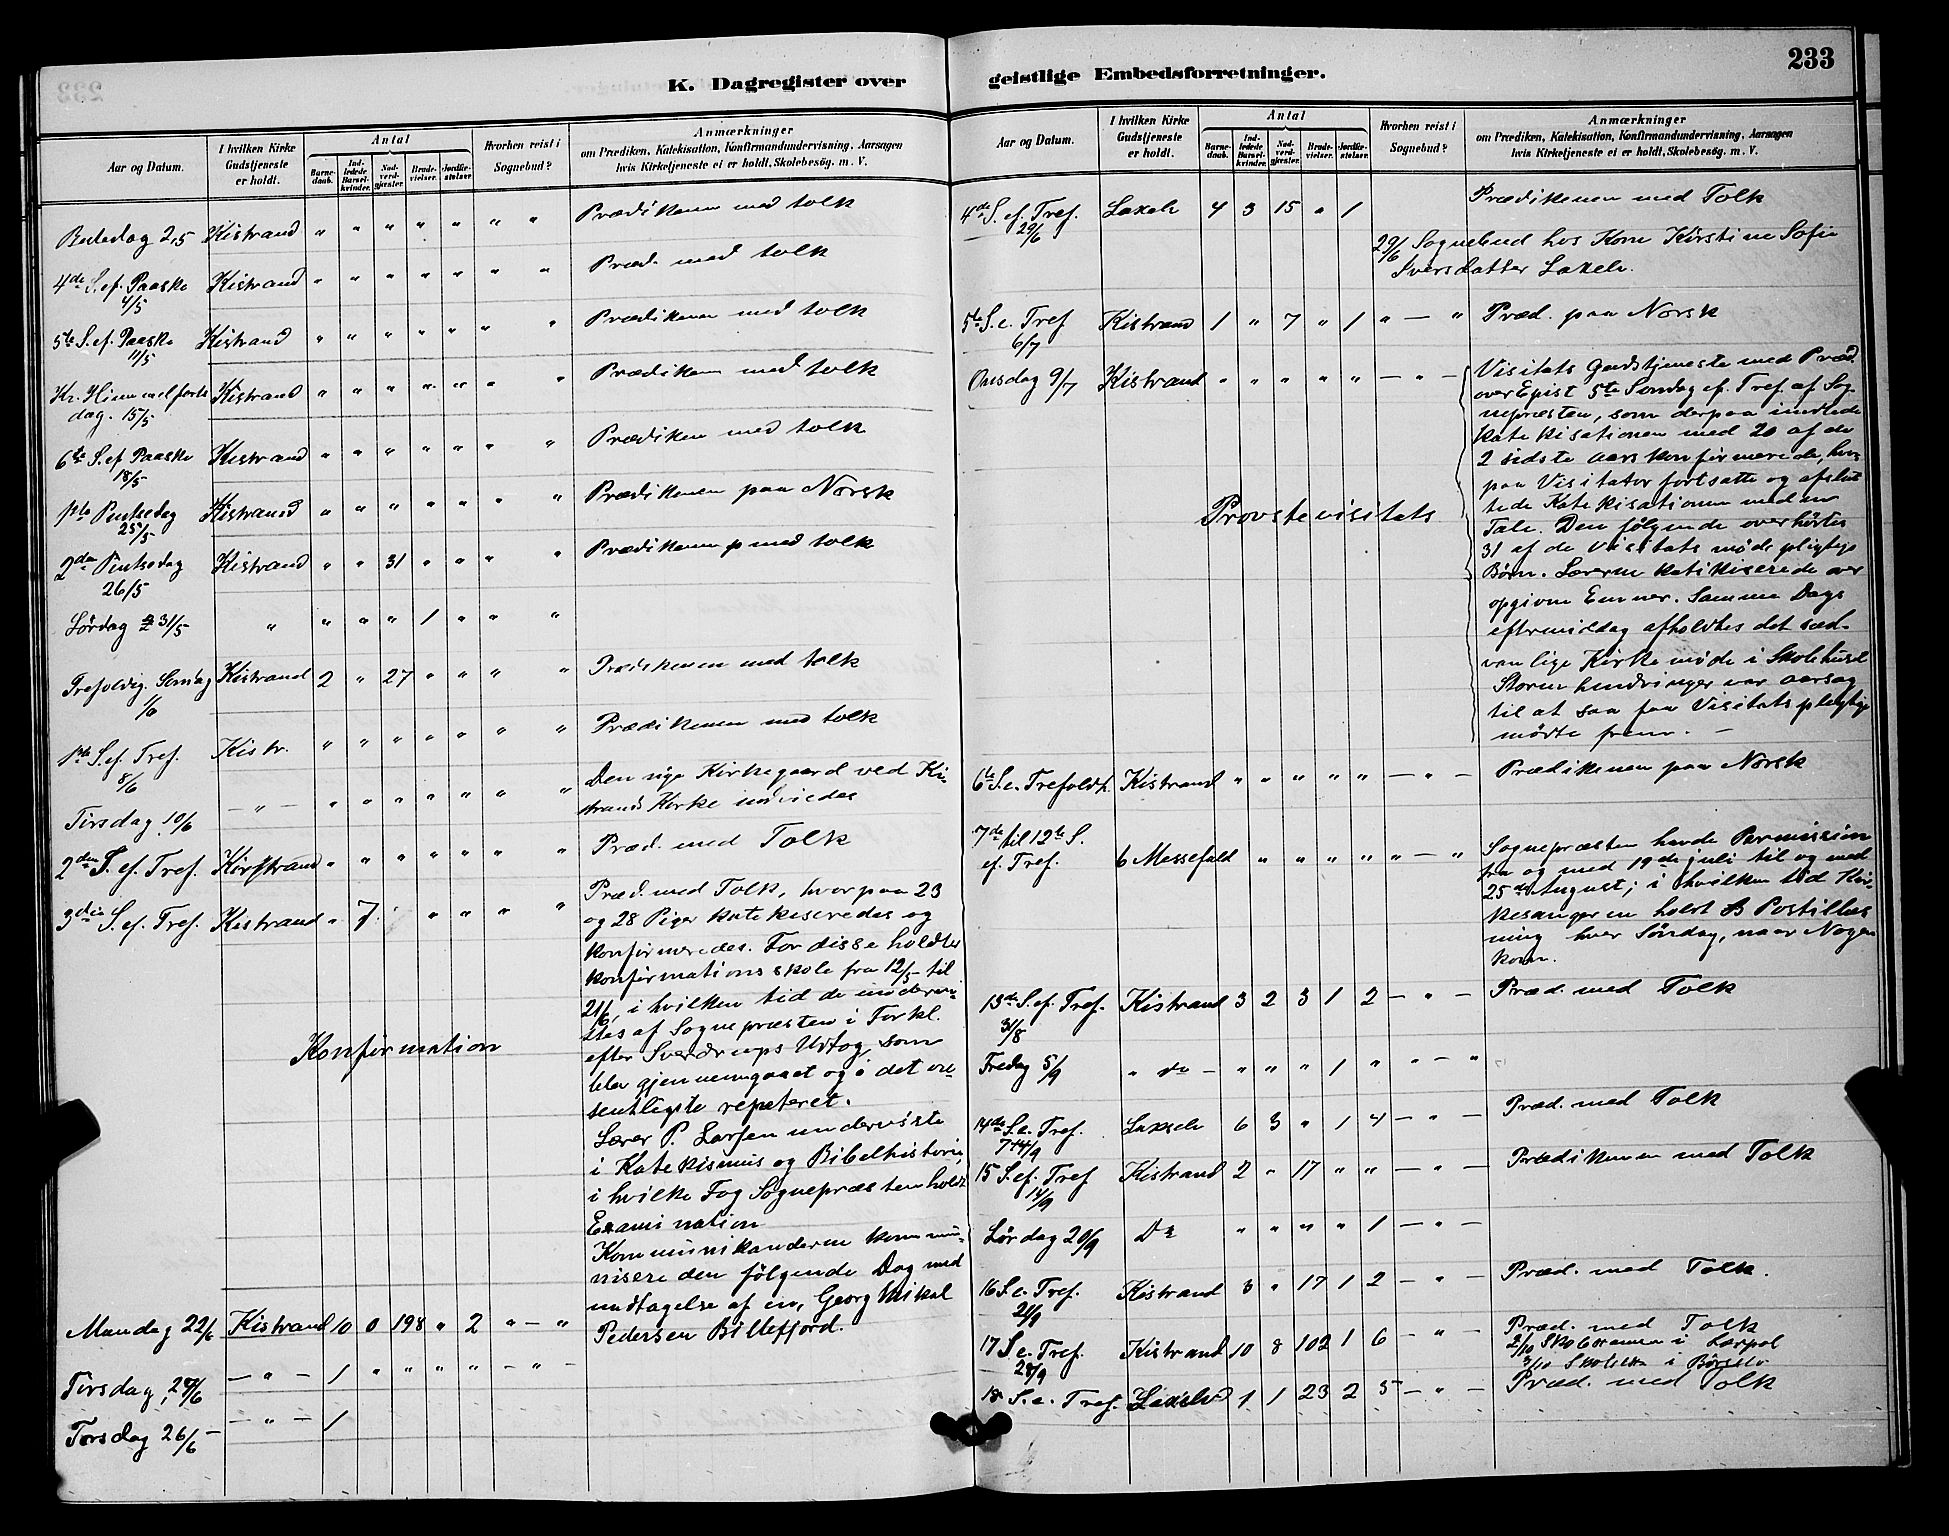 233
K. Dagregister over
Aar og Datum.
I hvilken Kirke Gudstjeneste er holdt.
Antal
Barne-daab.
Ind-ledede Barsel-kvinder.
Nad-verd-gjester.
Brude-vielser.
Jordfæ-stelser.
Hvorhen reist i Sognebud?
Anmærkninger
om Prædiken, Katekisation, Konfirmandundervisning, Aarsagen
hvis Kirketjeneste ei er holdt, Skolebesög. m. V.
Bededag 2/5 Kistrand " " " " " " " Prædikenen med tolk
4de S. ef. Paaske 4/5 Kistrand " " " " " " " Præd. med tolk
5te S. ef. Paaske 11/5 Kistrand " " " " " " " Prædikenen med tolk
Kr. Himmelfarts dag. 15/5 Kistrand " " " " " " " Prædiken med tolk
6te S. ef Paaske 18/5 Kistrand " " " " " " " Prædiken med tolk
1ste Pintsedag 25/5 Kistrand " " " " " " " Prædikenen paa Norsk
2den Pintsedag 26/5 Kistrand " " 31 " " " " Prædikenen med tolk
Lördag 31/5 " " " " 1 " " "
Trefoldig. Sondag 1/6 Kistrand 2 " 27 " " " " Prædikenen med tolk
1ste S. ef. Tref. 8/6 Kistr. " " " " " " " Prædikenen med tolk
Tirsdag 10/6 — " — " " " " " " " Den nye Kirkegaard ved Ki-
strands Kirke indviedes
2den S. ef. Tref. Kistrand " " " " " " " Præd. med Tolk
3die S. ef. Tref. Kistrand " 7 " " " " Præd. med Tolk, hvorpaa 23
og 28 Piger katekiseredes og
konfirmeredes. For disse holdtes
konfirmationsskole fra 12/5 til
21/6, i hvilken tid de undervi-
stes af Sognepræsten i Forkl.
Konfirmation
efter Sverdrups Udtog som
blev gjennemgaaet og i det væ-
sentligste repeteret.
Lærer P. Larsen underviste
i Katekismus og Bibelhistorie,
i hvilke Fag Sognepræsten holdt
Examination
Kommunikanderne kommu-
nisere den følgende Dag med
undtagelse af en, Georg Mikal
Mandag 22/6 Kistrand 10 0 198 " 2 " — " Pedersen Billefjord.
Tirsdag, 24/6 — " — 1 " " " " " — " —
Torsdag 26/6 — " — 1
geistlige Embedsforretninger.
Aar og Datum.
I hvilken Kirke Gudstjeneste er holdt.
Antal
Barne-daab.
Ind-ledede Barsel-kvinder.
Nad-verd-gjester.
Brude-vielser.
Jordfæ-stelser.
Hvorhen reist i Sognebud?
Anmærkninger
om Prædiken, Katekisation, Konfirmandundervisning, Aarsagen
hvis Kirketjeneste ei er holdt, Skolebesög. m. V.
4de S. ef. Tref. 29/6 Laxelv 4 3 15 " 1 Prædikenen med Tolk
29/6 Sognebud hos Kone Kirstine Sofie
Iversdatter Laxelv.
5te S. e. Tref 6/7 Kistrand 1 " 7 " 1 " — " Præd. paa Norsk
Onsdag 9/7 Kistrand " " " " " — " — Visitats Gudstjeneste med Præd.
over Epist 5te Söndag ef. Tref. af Sog-
nepræsten, som derpaa indledede
katekisationen med 20 af de
2 sidste aars konfirmerede, hvor
paa Visitator fortsatte og afslut
Provstevisitats
tede Katekisationen med en
Tale. Den følgende overhörtes
31 af de Visitats mödepligtige
Börn. Lærerne katekiserede over
opgivne Emner. Samme Dags
eftermiddag afholdtes det sæd-
vanlige Kirkemöde i Skolehuset
Storm hindringer var aarsag
til at saa faa Visitatspligtige
mödte frem. —
6te S. e. Trefoldh. Kistrand " " " " " — " — Prædikenen paa Norsk
7de til 12te S. ef. Tref. 6 Messefald " " " " " — " Sognepræsten havde Permission
fra og med 19de juli til og med
25de August; i hvilken tid Kir-
kesangeren holdt Postillæs
ning hver Söndag, naar Nogen
kom.
13de S. ef. Tref. 31/8 Kistrand 3 2 3 1 2 — " — Præd. med Tolk
Fredag 5/9 " do — " " " 1 " " — "
14de S. e. Tref. 7/9 Laxelv 6 3 " 1 4 — " — Præd. med Tolk
15 S. ef. Tref 14/9 Kistrand 2 " 17 " " — " — Prædikenen med Tolk
Lördag 20/9 Do " " " " 1 — " —
16 S. e. Tref. 21/9 Kistrand 3 " 17 1 2 — " — Præd. med Tolk.
17 S e. Tref. 28/9 Kistrand 10 8 102 1 6 — " — Præd. med Tolk
2/10 Skolexamen i
3/10 i Börselv
18 S. e. Tref. Laxelv 1 1 23 2 5 — " — Præd. med Tolk